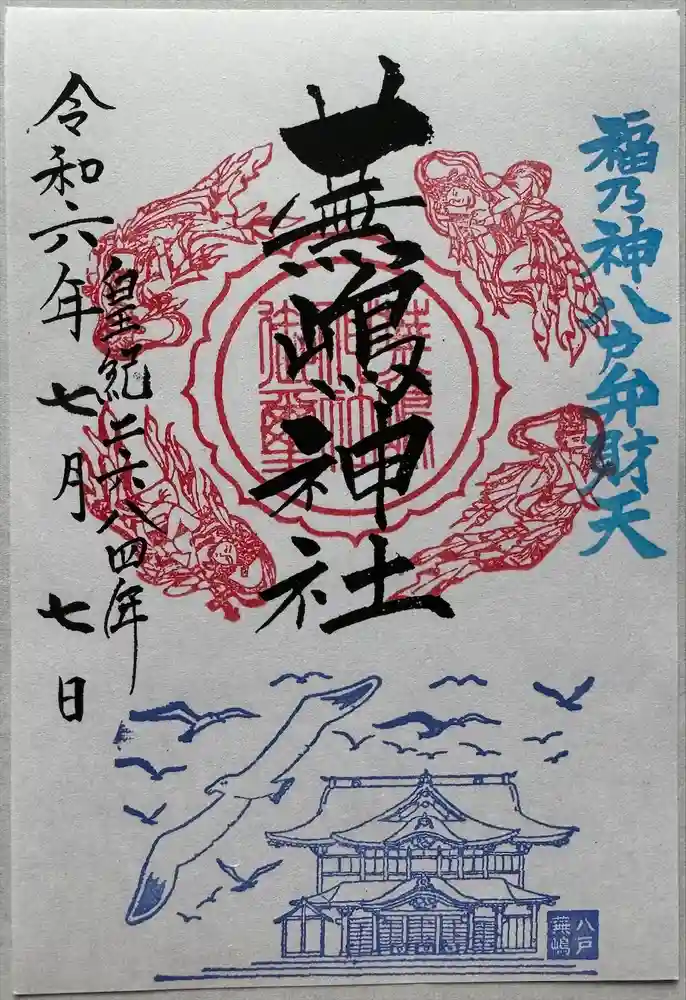 福乃神八戸弁財天
蕪嶋神社
皇紀二六八四年
令和六年七月七日
八戸
蕪嶋